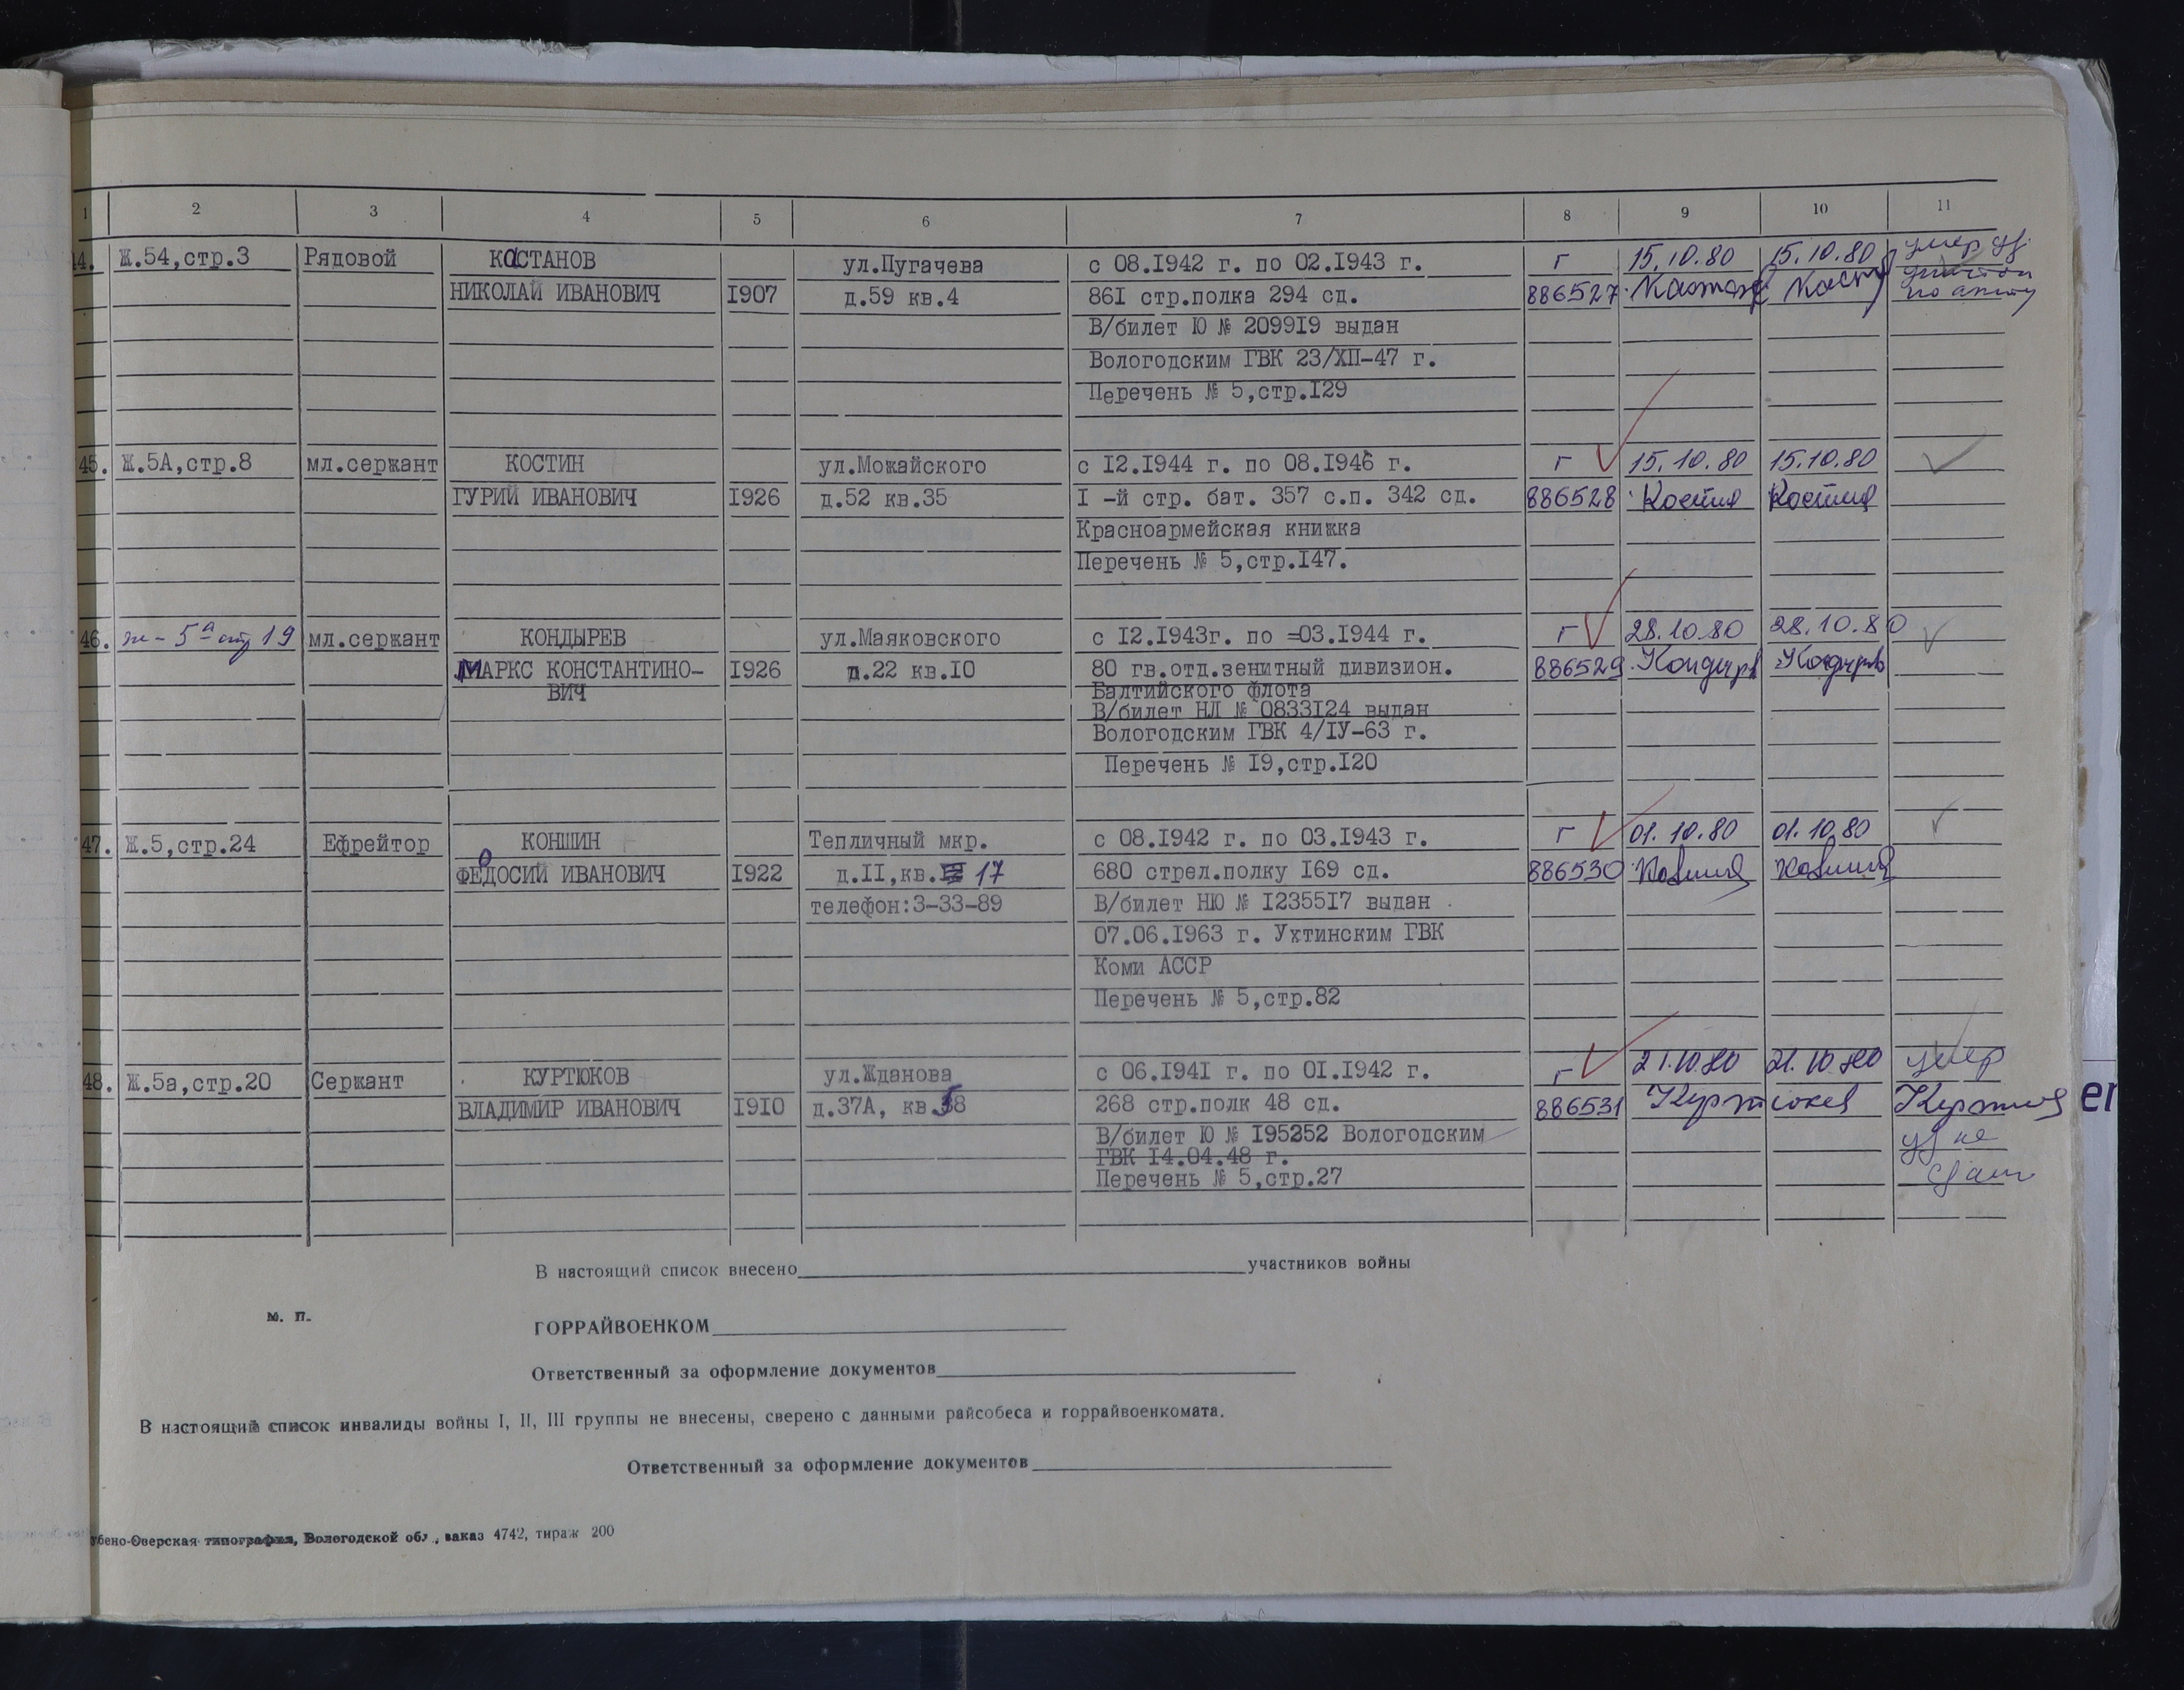 1 2 3 4 5 6 7 8 9 10 11
44. Ж.54,стр.3 Рядовой КАСТАНОВ ул.Пугачева с 08.I942 г. по 02.I943 г. Г 15.10.80 15.10.80 умер уд.
НИКОЛАЙ ИВАНОВИЧ I907 д.59 кв.4 86I стр.полка 294 сд. 886527
по акту
В/билет Ю № 2099I9 выдан
Вологодским ГВК 23/ХП-47 г.
Перечень № 5,стр.I29
45. Ж.5А,стр.8 мл.сержант КОСТИН ул.Можайского с I2.I944 г. по 08.I946 г. Г 15.10.80 15.10.80
ГУРИЙ ИВАНОВИЧ I926 д.52 кв.35 I -й стр. бат. 357 с.п. 342 сд. 886528 Костин Костин
Красноармейская книжка
Перечень № 5,стр.I47.
46. ж-5а стр 19 мл.сержант КОНДЫРЕВ ул.Маяковского с I2.I943г. по =03.I944 г. Г 28.10.80 28.10.80
МАРКС КОНСТАНТИНО- I926 д.22 кв.I0 80 гв.отд.зенитный дивизион. 886529
ВИЧ Балтийского флота
В/билет НЛ № 0833I24 выдан
Вологодским ГВК 4/IУ-63 г.
Перечень № I9,стр.I20
47. Ж.5,стр.24 Ефрейтор КОНШИН Тепличный мкр. с 08.I942 г. по 03.I943 г. Г 01.10.80 01.10.80
ФЕОДОСИЙ ИВАНОВИЧ I922 д.II,кв. 17 680 стрел.полку I69 сд. 886530
телефон:3-33-89 В/билет НЮ № I2355I7 выдан
07.06.I963 г. Ухтинским ГВК
Коми АССР
Перечень № 5,стр.82
48. Ж.5а,стр.20 Сержант КУРТЮКОВ ул.Жданова с 06.I94I г. по 0I.I942 г. Г 21.10.80 21.10.80 умер
ВЛАДИМИР ИВАНОВИЧ I9I0 д.37А, кв.58 268 стр.полк 48 сд. 886531 Куртюков
В/билет Ю № I95252 Вологодским уд не
ГВК I4.04.48 г.
Перечень № 5,стр.27 сдан
В настоящий список внесено участников войны
м. п.
ГОРРАЙВОЕНКОМ
Ответственный за оформление документов
В настоящий список инвалиды войны I, II, III группы не внесены, сверено с данными райсобеса и горрайвоенкомата.
Ответственный за оформление документов
убено-Озерская типография, Вологодской обл., заказ 4742, тираж 200